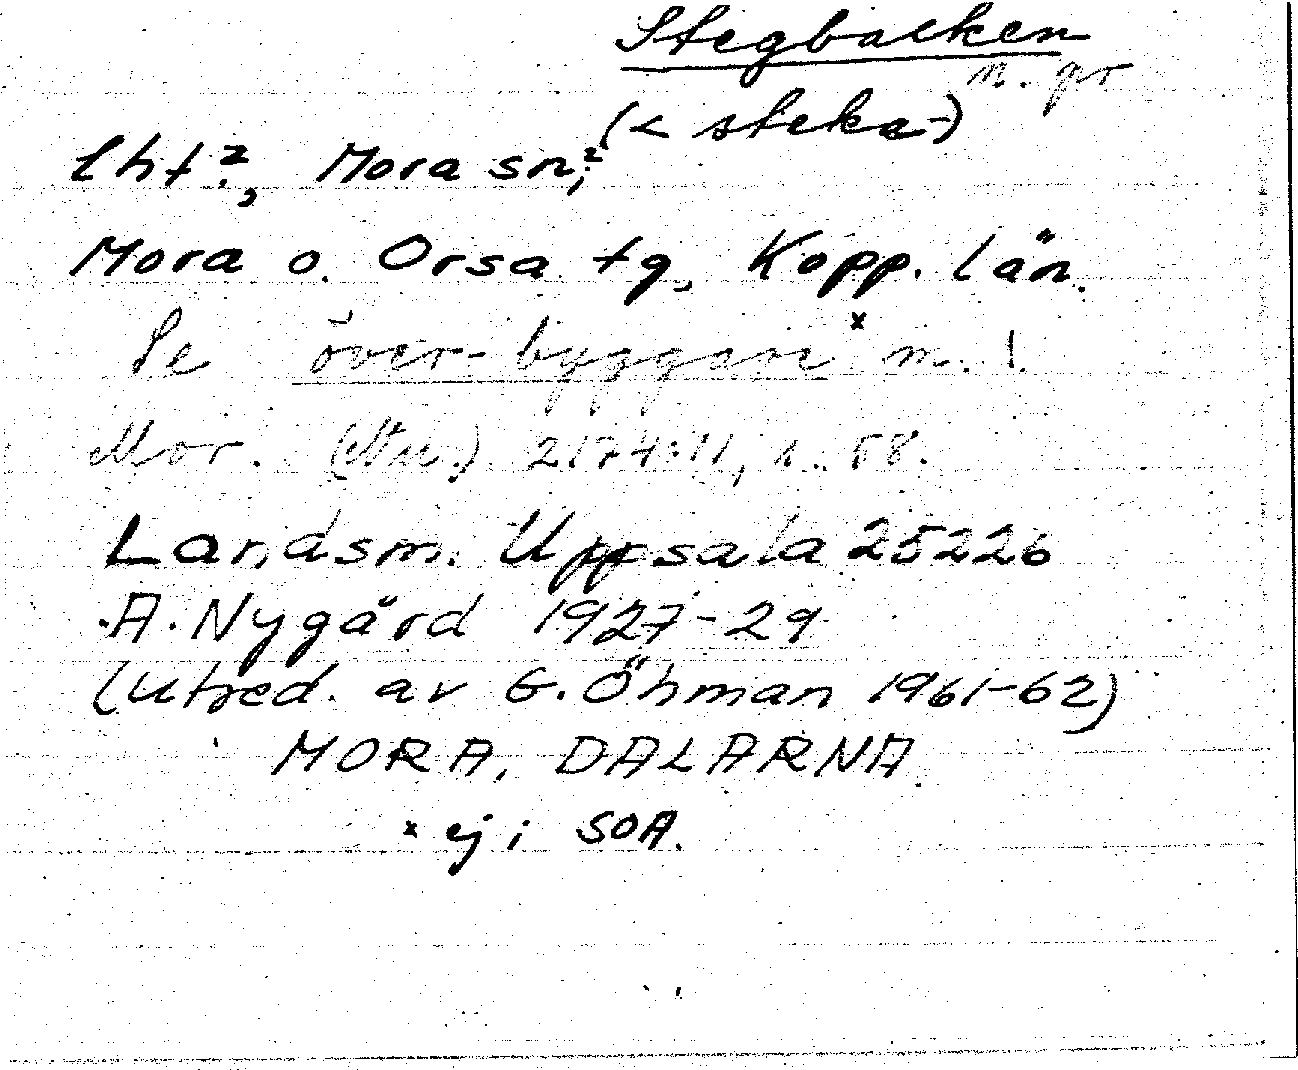 Stegbacken
n. gr
(< steka-)
lht?, Mora sn?,
Mora o. Orsa tg, Kopp. län.
Se över-byggare x m. !
Mor. (Nu.) 2174:11, s. 58.
Landsm. Uppsala 25226
A. Nygård 1927-29
(Utred. av G. Öhman 1961-62)
MORA, DALARNA
x ej i SOA.